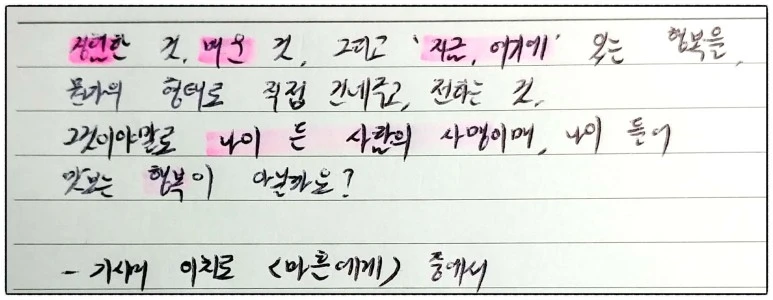 경험한 것, 배운 것, 그리고 '지금, 여기에' 있는 행복을,
문자의 형태로 직접 건네주고, 전하는 것.
그것이야말로 나이 든 사람의 사명이며, 나이 들어
맛보는 행복이 아닐까요?
- 기시미 이치로 <마흔에게> 중에서